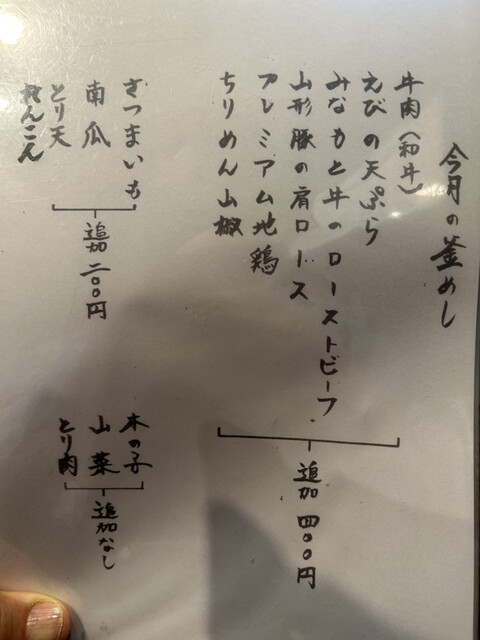 今月の釜めし
牛肉(和牛)
えびの天ぷら
みなもと牛のローストビーフ
山形豚の肩ロース
プレミアム地鶏
ちりめん山椒
追加四〇〇円
さつまいも
南瓜
とり天
れんこん
追加二〇〇円
木の子
山菜
とり肉
追加なし